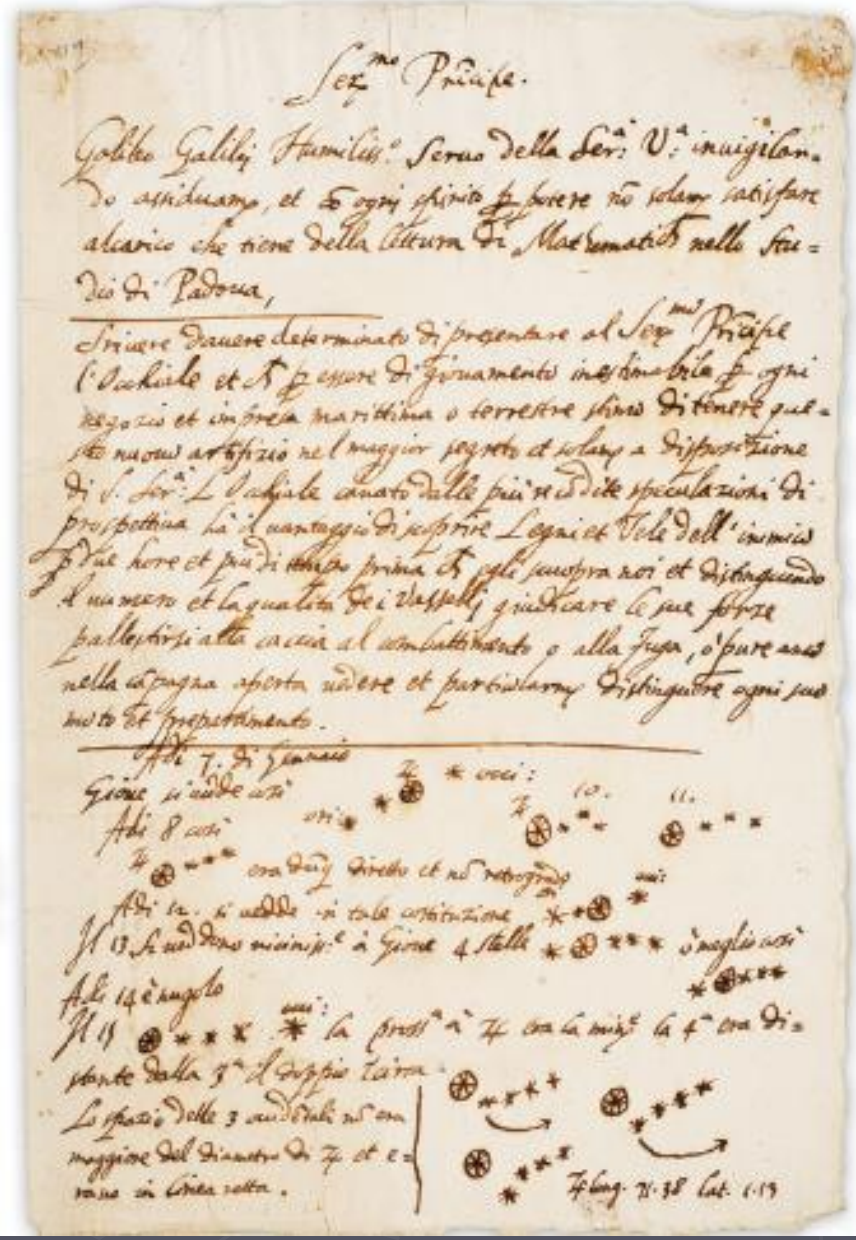 Ser.mo Prīcipe.
Galileo Galilej Humiliss.o Seruo della Ser.a V.a inuigilan=
do assiduam.e, et cō ogni spirito ꝑ potere nō solam.e satisfare
alcarico che tiene della lettura di Mathematich nello Stu=
dio di Padoua,
Scriuere dauere determinato di presentare al Ser.mo Prīcipe
l'Occhiale et ch ꝑ essere di giouamento inestimabile ꝑ ogni
negozio et impresa marittima o terrestre stimo di tenere que=
sto nuouo artifizio nel maggior segreto et solam.e a disposizione
di S. Ser.a L'Occhiale cauato dalle più recōdite speculazioni di
prospettiua ha il uantaggio di scoprire Legni et Vele dell'inimico
ꝑ due hore et più di tempo prima ch egli scuopra noi et distinguendo
il numero et la qualità dei Vasselli giudicare le sue forze
pallestirsi alla caccia al combattimento o alla fuga, o pure anco
nella cāpagna aperta uedere et particolarm.e distinguere ogni suo
moto et preparamento.
Adi 7. di Gennaio
Gioue si uede così ♃ * occi:
Adi 8 così ori: ♃ 10. 11.
♃ era dūq diretto et nō retrogrado
Adi 12. si uedde in tale costituzione ori occi:
Il 13 si ueddono uiciniss.e à Gioue 4 stelle * * * * ò meglio così
Adi 14 è nugolo
Il 15 * * * * occi: la pross.a à ♃ era la min.e la 4.a era di=
stante dalla 3.a il doppio
Lo spazio delle 3 occidētali nō era
maggiore del diametro di ♃ et e=
rano in linea retta.
♃ long. 71.38 lat. 1.13